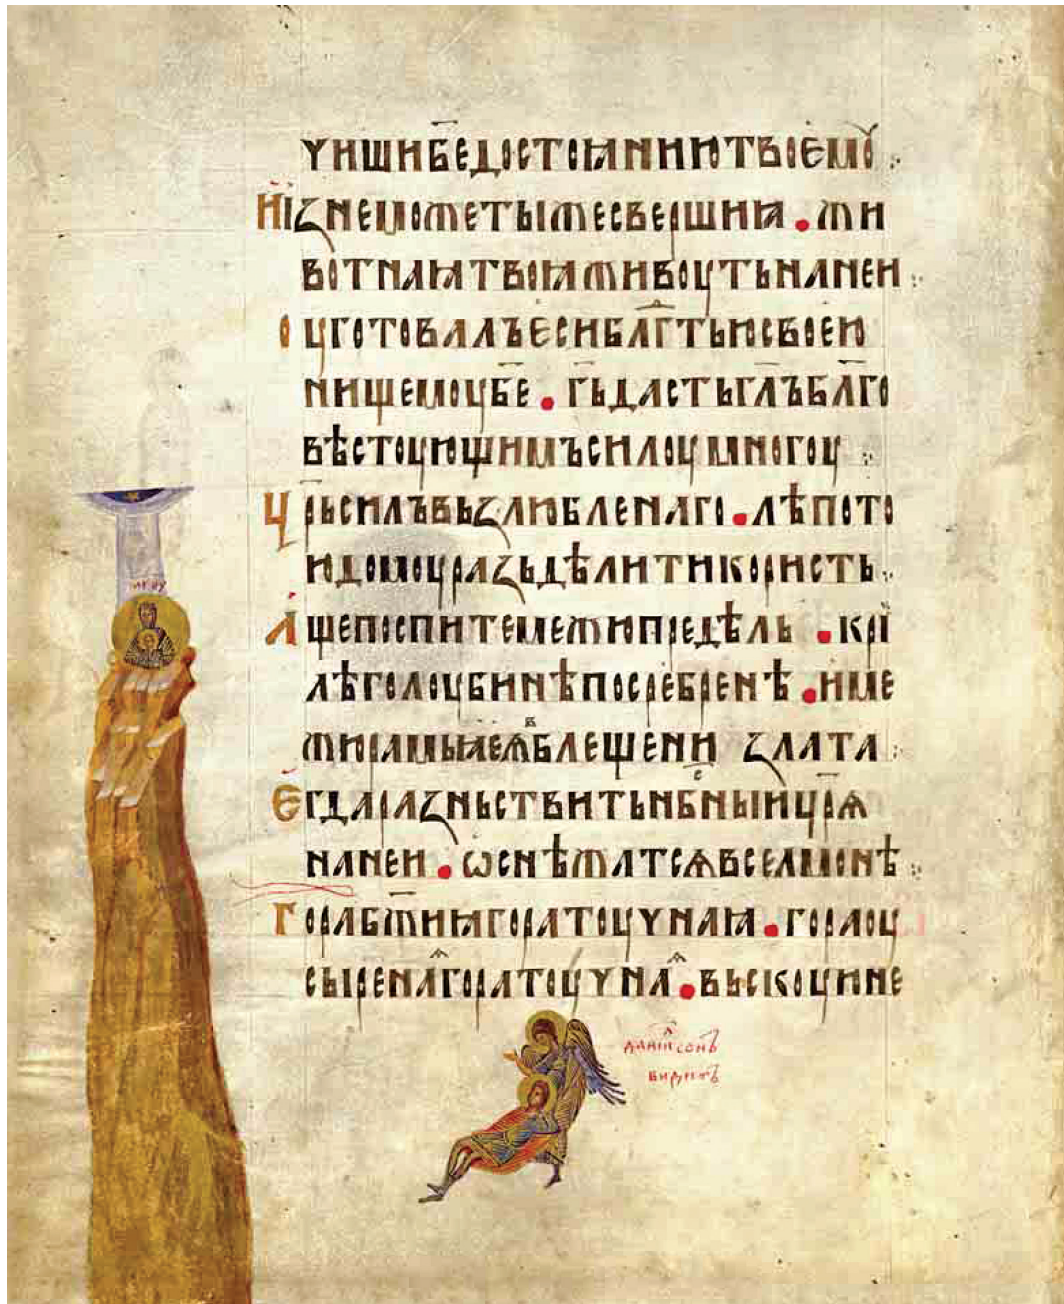 чиши б҃е достоꙗнию твоемоу
И изнеможе ты же сверши ꙗ • жи
вотнаꙗ твоꙗ живоуть на неи
оуготовалъ еси блг҃дтью своею
нищемоу б҃е • г҃ь дасть гл҃ъ бл҃го
вѣстоующимъ силоу многоу
Цр҃ь силъ възлюбленаго • лѣпото
ю домоу разьдѣлити користь
Аще поспите межю предѣль • кри
лѣ голоубинѣ посребренѣ • и ме
жирамьꙗ еѩ в блещени и злата
Егда разньствить нбс҃ныи цр҃ѧ
на неи • ѡснѣжатсѧ в селмонѣ
Гора бж҃иꙗ гора тоучнаꙗ • гора оу
сыренаꙗ гора тоучнаꙗ • въскоую не
МР ѲУ
данил сонъ
видить